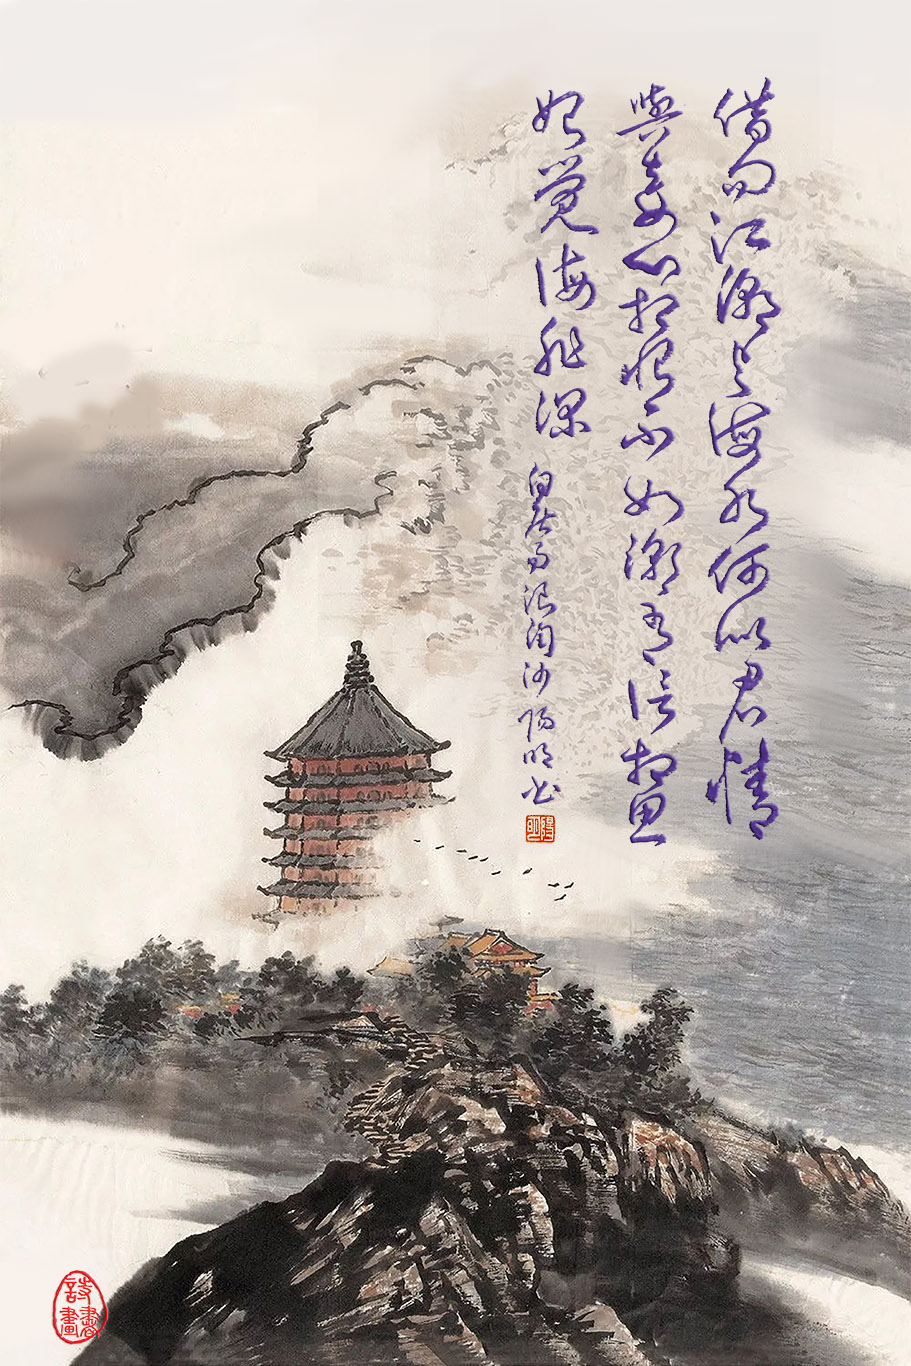 借问江潮与海水何似君情
与妾心相恨不如潮有信相思
始觉海非深 白居易浪淘沙 阳明书
陽明
詩書畫